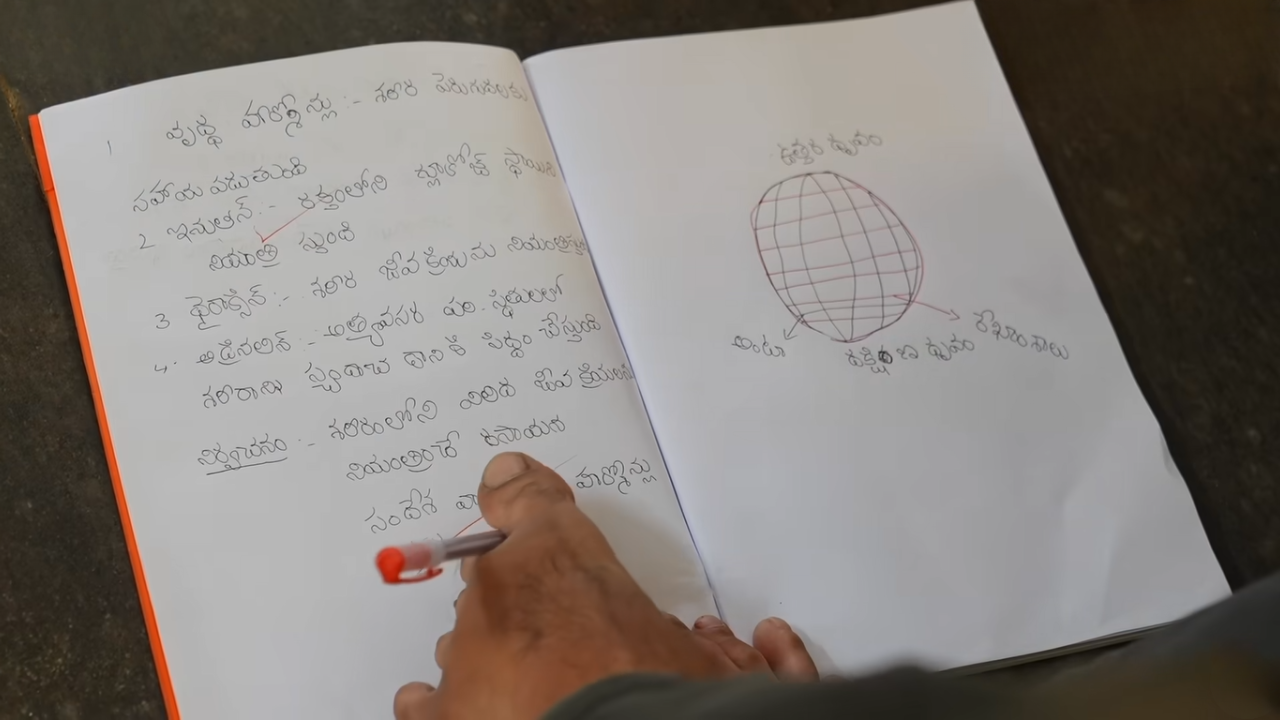 1 వృద్ధ హార్మోన్లు :- శరీర పెరుగుదలకు
సహాయ పడుతుంది
2 ఇనులిన్ :- రక్తంలోని గ్లూకోజ్ స్థాయిని
నియంత్రి స్తుంది
3 థైరాక్సిన్ :- శరీర జీవ క్రియను
4. అడ్రినలిన్ :- అత్యావసర పరిస్థితులలో
శరీరాని దానికి సిద్ధం చేస్తుంది
నిర్వచనం :- శరీరంలోని వివిధ జీవ క్రియలను
నియంత్రించే రసాయన
సందేశ హార్మోన్లు
ఉత్తర ధృవం
రేఖాంశాలు
దక్షిణ ధృవం